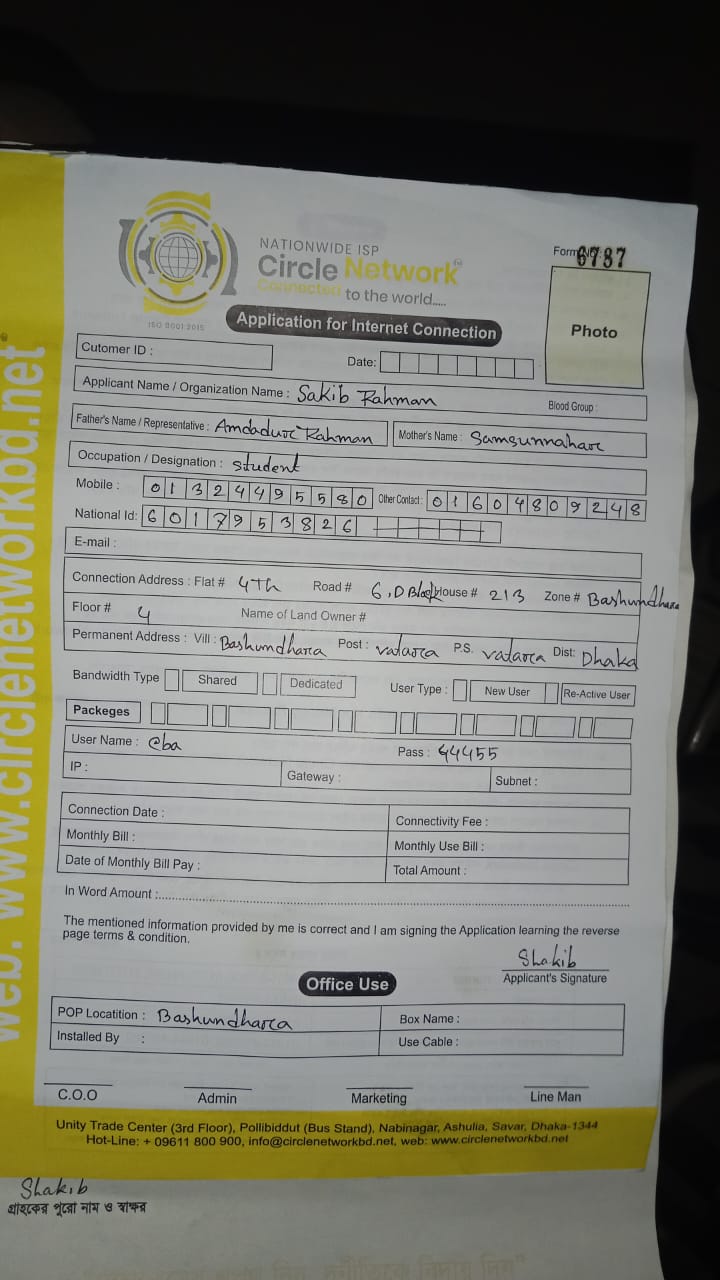 NATIONWIDE ISP
Circle Network
Connected to the world.....
ISO 9001:2015
Form No: 6787
Application for Internet Connection
Photo
Cutomer ID :
Date:
Applicant Name / Organization Name : Sakib Rahman Blood Group :
Father's Name / Representative : Amdadur Rahman Mother's Name : Samsunnahar
Occupation / Designation : student
Mobile : 01324495580 Other Contact : 01604809248
National Id: 6017953826
E-mail :
Connection Address : Flat # 4Th Road # 6, D Block House # 213 Zone # Bashundhara
Floor # 4 Name of Land Owner #
Permanent Address : Vill : Bashundhara Post : vatara P.S. vatara Dist: Dhaka
Bandwidth Type Shared Dedicated User Type : New User Re-Active User
Packeges
User Name : @ba Pass : 44455
IP : Gateway : Subnet :
Connection Date : Connectivity Fee :
Monthly Bill : Monthly Use Bill :
Date of Monthly Bill Pay : Total Amount :
In Word Amount :
The mentioned information provided by me is correct and I am signing the Application learning the reverse
page terms & condition.
Shakib
Applicant's Signature
Office Use
POP Locatition : Bashundhara Box Name :
Installed By : Use Cable :
C.O.O Admin Marketing Line Man
Unity Trade Center (3rd Floor), Pollibiddut (Bus Stand), Nabinagar, Ashulia, Savar, Dhaka-1344
Hot-Line: + 09611 800 900, info@circlenetworkbd.net, web: www.circlenetworkbd.net
web: www.circlenetworkbd.net
Shakib
গ্রাহকের পুরো নাম ও স্বাক্ষর